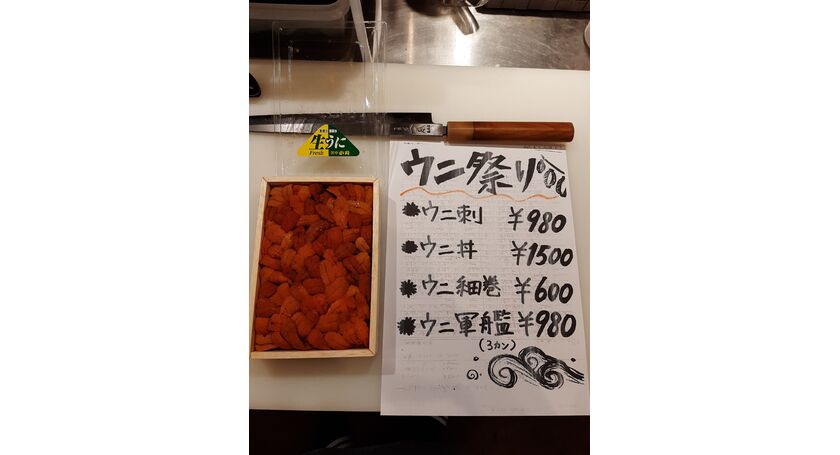 生うに
Fresh
ウニ祭り
ウニ刺 ¥980
ウニ丼 ¥1500
ウニ細巻 ¥600
ウニ軍艦 ¥980
(3カン)